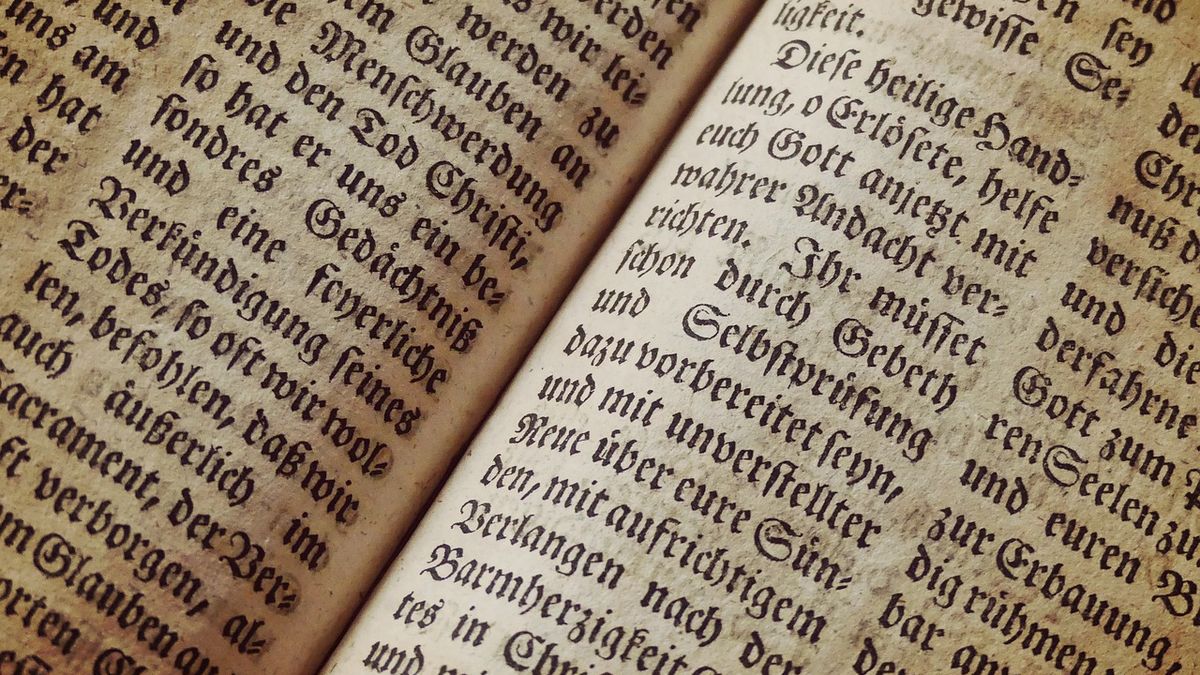 uns am
en hat
der
er=
ſen
erden
wir lei=
werden zu
Glauben an
die Menſchwerdung
und den Tod Chriſti,
ſo hat er uns ein be=
ſondres Gedächtniß
und eine feyerliche
Verkündigung ſeines
Todes, ſo oft wir wol=
len, befohlen, daß wir
auch äußerlich im
Sacrament, der Ver=
ft verborgen, al=
m Glauben an
orten
gewiſſe Se=
ligkeit.
Dieſe heilige Hand=
lung, o Erlöſete, helfe
euch Gott anjetzt mit
wahrer Andacht ver=
richten. Ihr müſſet
ſchon durch Gebeth
und Selbſtprüfung
dazu vorbereitet ſeyn,
und mit unverſtellter
Reue über eure Sün=
den, mit aufrichtigem
Verlangen nach der
Barmherzigkeit
tes in Chri
und
ſey
Chri
nuß d
verſiche
und die
derfahrne
Gott zum
ren Seelen zu
und euren B
zur Erbauung,
dig rühmen
bar an